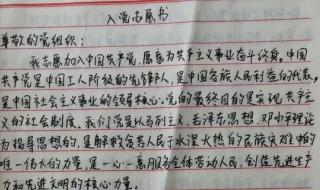 入党志愿书
尊敬的党组织：
我志愿加入中国共产党，愿意为共产主义事业奋斗终身。中国
共产党是中国工人阶级的先锋队，是中国各族人民利益的代表，
是中国社会主义事业的领导核心。党的最终目的是实现共产主
义的社会制度。我们党是以马列主义、毛泽东思想、邓小平理论
为指导思想的，是解救教苦人民于水深火热的民族灾难中的
唯一伟大的力量，是一心一意服务全体劳动人民，创造先进生产
力和先进文明的核心力量。